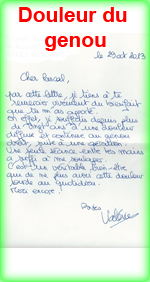 Douleur du
genou
le 29 oct 2013
Cher Pascal,
par cette lettre, je tiens à te
remercier vivement du bienfait
que tu m'as apporté.
En effet, je souffrais depuis plus
de vingt ans d'une douleur
diffuse et continue au genou
droit, suite à une opération.
Une seule séance entre tes mains
a suffi à me soulager.
C'est un véritable bien-être
que de ne plus avoir cette douleur
au quotidien.
Merci encore !
Valérie